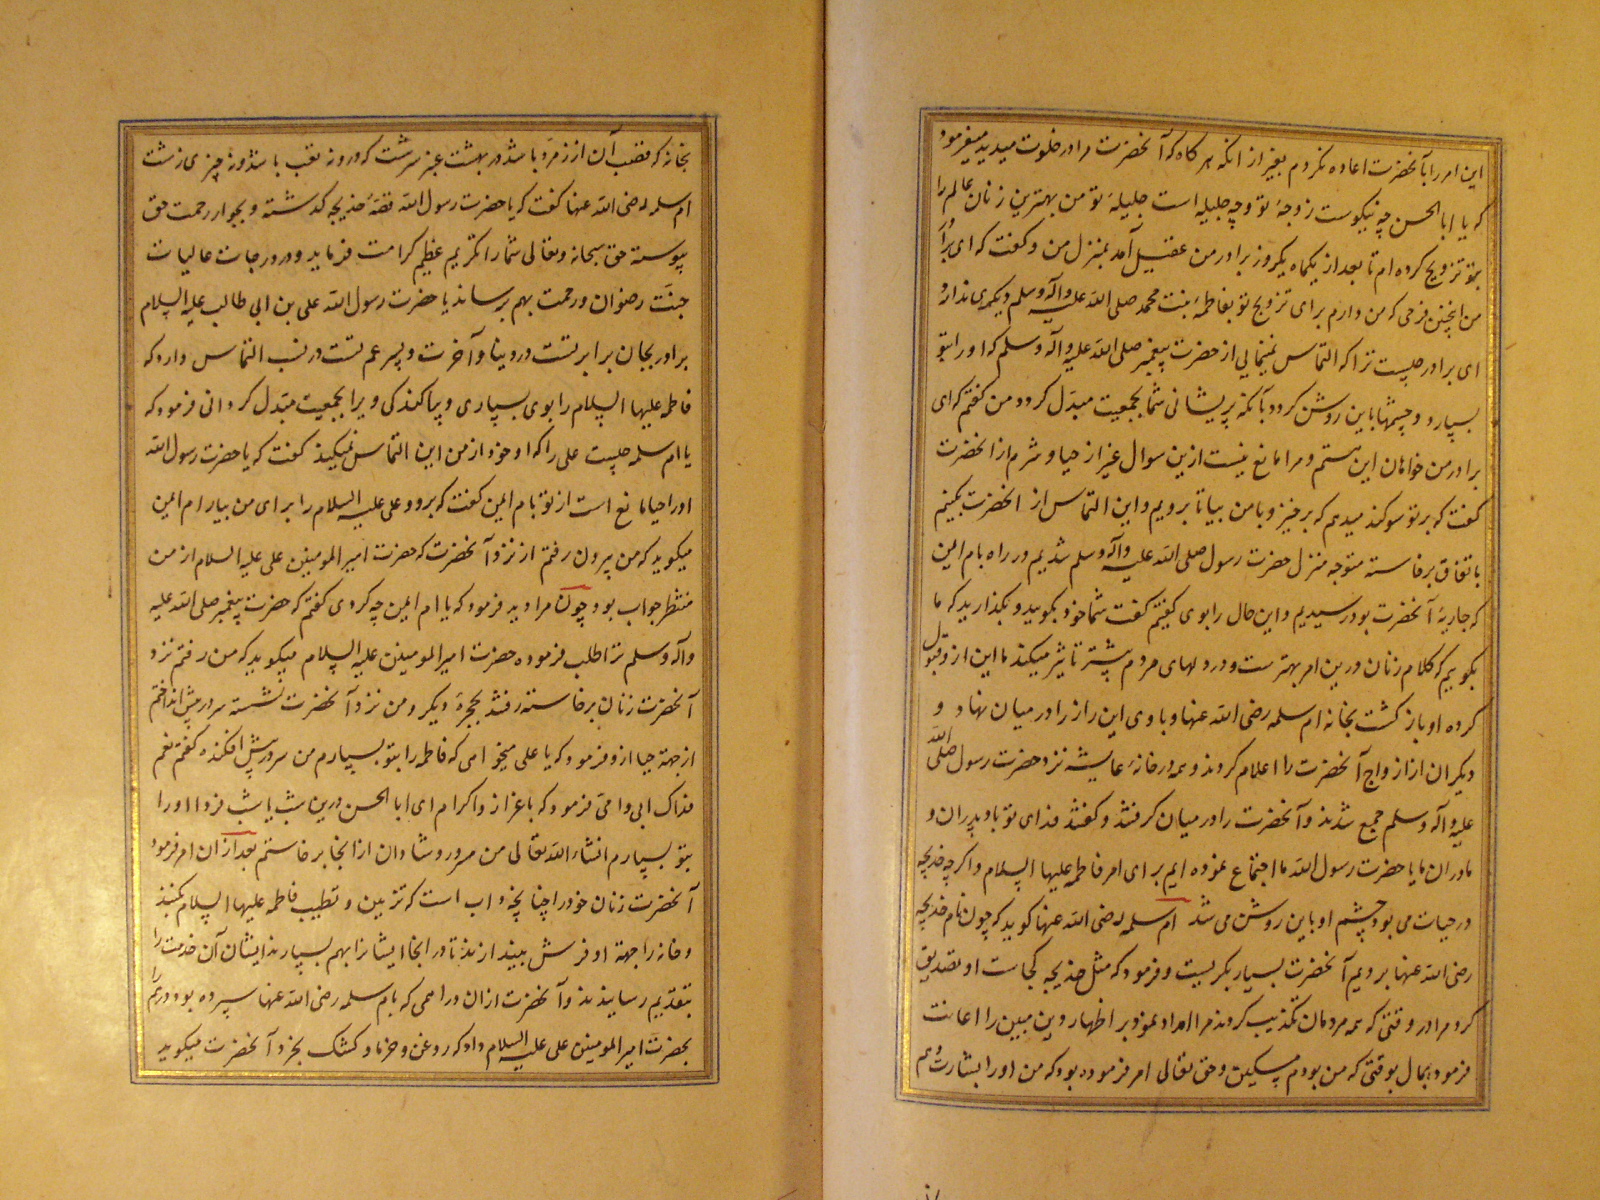 این امر را بآنحضرت اعاده نکردم بغیر از انکه هر گاه که آنحضرت مرا در خلوت میدید میفرمود
که یا ابا الحسن چه نیکوست زوجهٔ تو و چه جلیله است جلیلهٔ تو من بهترین زنان عالم را
بتو تزویج کرده ام تا بعد از یکماه یکروز برادر من عقیل آمد بمنزل من و گفت که ای برادر
من اینچنین فرحی که من دارم برای تزویج تو بفاطمهٔ بنت محمد صلی الله علیه وآله وسلم دیگری ندارد
ای برادر چیست ترا که التماس نمینمایی از حضرت پیغمبر صلی الله علیه وآله وسلم که او را بتو
بسپارد و چشمها باین روشن گردد بآنکه پریشانی شما بجمعیت مبدل گردد من گفتم که ای
برادر من خواهان این هستم و مرا مانع نیست ازین سوال غیر از حیا و شرم از انحضرت
گفت که بر تو سوگند میدهم که برخیز و با من بیا تا برویم و این التماس از انحضرت بکنیم
باتفاق برخاسته متوجه منزل حضرت رسول صلی الله علیه وآله وسلم شدیم در راه بام ایمن
که جاریهٔ آنحضرت بود رسیدیم و این حال را بوی گفتیم گفت شما خود بگویید و بگذارید که ما
بگوییم که کلام زنان درین امر بهترست و در دلهای مردم بیشتر تاثیر میکند ما این از و قبول
کرده او باز گشت بخانه ام سلمه رضی الله عنها و با وی این راز را در میان نهاد و
دیگران از ازواج آنحضرت را اعلام کردند و همه در خانهٔ عایشه نزد حضرت رسول صلی الله
علیه وآله وسلم جمع شدند و آنحضرت را در میان گرفتند و گفتند فدای تو باد پدران و
مادران ما یا حضرت رسول الله ما اجتماع نموده ایم برای امر فاطمه علیها السلام و اگر چه خدیجه
در حیات می بود چشم او باین روشن می شد ام سلمه رضی الله عنها گوید که چون نام خدیجه
رضی الله عنها بردیم آنحضرت بسیار بگریست و فرمود که مثل خدیجه کجاست او تصدیق
کرد مرا در وقتی که همه مردمان تکذیب کردند مرا امداد نمود بر اظهار دین مبین را اعانت
فرمود بمال بوقتی که من بودم مسکین و حق تعالی امر فرموده بود که من او را بشارت دهم
بخانه که قصب آن از زمرد باشد در بهشت عنبر سرشت که درو نه تعب باشد و نه چیزی زشت
ام سلمه رضی الله عنها گفت که یا حضرت رسول الله قصهٔ خدیجه گذشته و بجوار رحمت حق
پیوسته حق سبحانه وتعالی شما را تکریم عظیم کرامت فرماید و در درجات عالیات
جنت رضوان و رحمت بهم برساند یا حضرت رسول الله علی بن ابی طالب علیه السلام
برادر بجان برابر تست در دنیا و آخرت و پسر عم تست در نسب التماس دارد که
فاطمه علیها السلام را بوی بسپاری و پراکندگی ویرا بجمعیت مبدل گردانی فرمود که
یا ام سلمه چیست علی را که او خود از من این التماس نمیکند گفت که یا حضرت رسول الله
او را حیا مانع است از تو بام ایمن گفت که برو و علی علیه السلام را برای من بیار ام ایمن
میگوید که من بیرون رفتم از نزد آنحضرت که حضرت امیر المومنین علی علیه السلام از من
منتظر جواب بود چون مرا دید فرمود که یا ام ایمن چه کردی گفتم که حضرت پیغمبر صلی الله علیه
وآله وسلم ترا طلب فرموده حضرت امیر المومنین علیه السلام میگوید که من رفتم نزد
آنحضرت زنان برخاسته رفتند بحجرهٔ دیگر و من نزد آنحضرت نشسته سر در پیش انداختم
از جهة حیا ازو فرمود که یا علی میخواهی که فاطمه را بتو بسپارم من سر در پیش افکنده گفتم نعم
فداک ابی وامی فرمود که باعزاز و اکرام ای ابا الحسن درین شب یا شب فردا او را
بتو بسپارم انشاء الله تعالی من مسرور و شادان از انجا برخاستم بعد از ان امر فرمود
آنحضرت زنان خود را چنانچه داب است که تزیین و تطییب فاطمه علیها السلام بکنند
و خانه را جهة او فرش بیندازند تا در انجا ایشانرا بهم بسپارند ایشان آن خدمت را
بتقدیم رسانیدند و آنحضرت ازان دراهمی که بام سلمه رضی الله عنها سپرده بود درهم را
بحضرت امیر المومنین علی علیه السلام داد که روغن و خرما و کشک بخرد آنحضرت میگوید